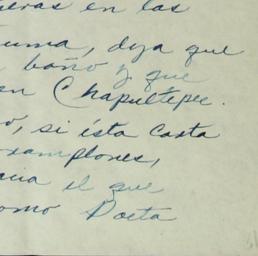 eras en las
uma, deja que
baño y que
en Chapultepec.
o, si ésta carta
xamplones,
el que
omo Poeta